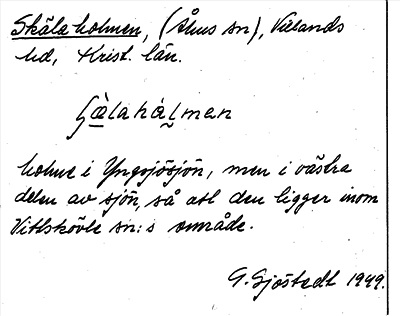 Skälaholmen, (Åhus sn), Villands
hd, Krist. län.
holme i Yngsjösjön, men i västra
delen av sjön, så att den ligger inom
Vittskövle sn:s område.
G. Sjöstedt 1949.